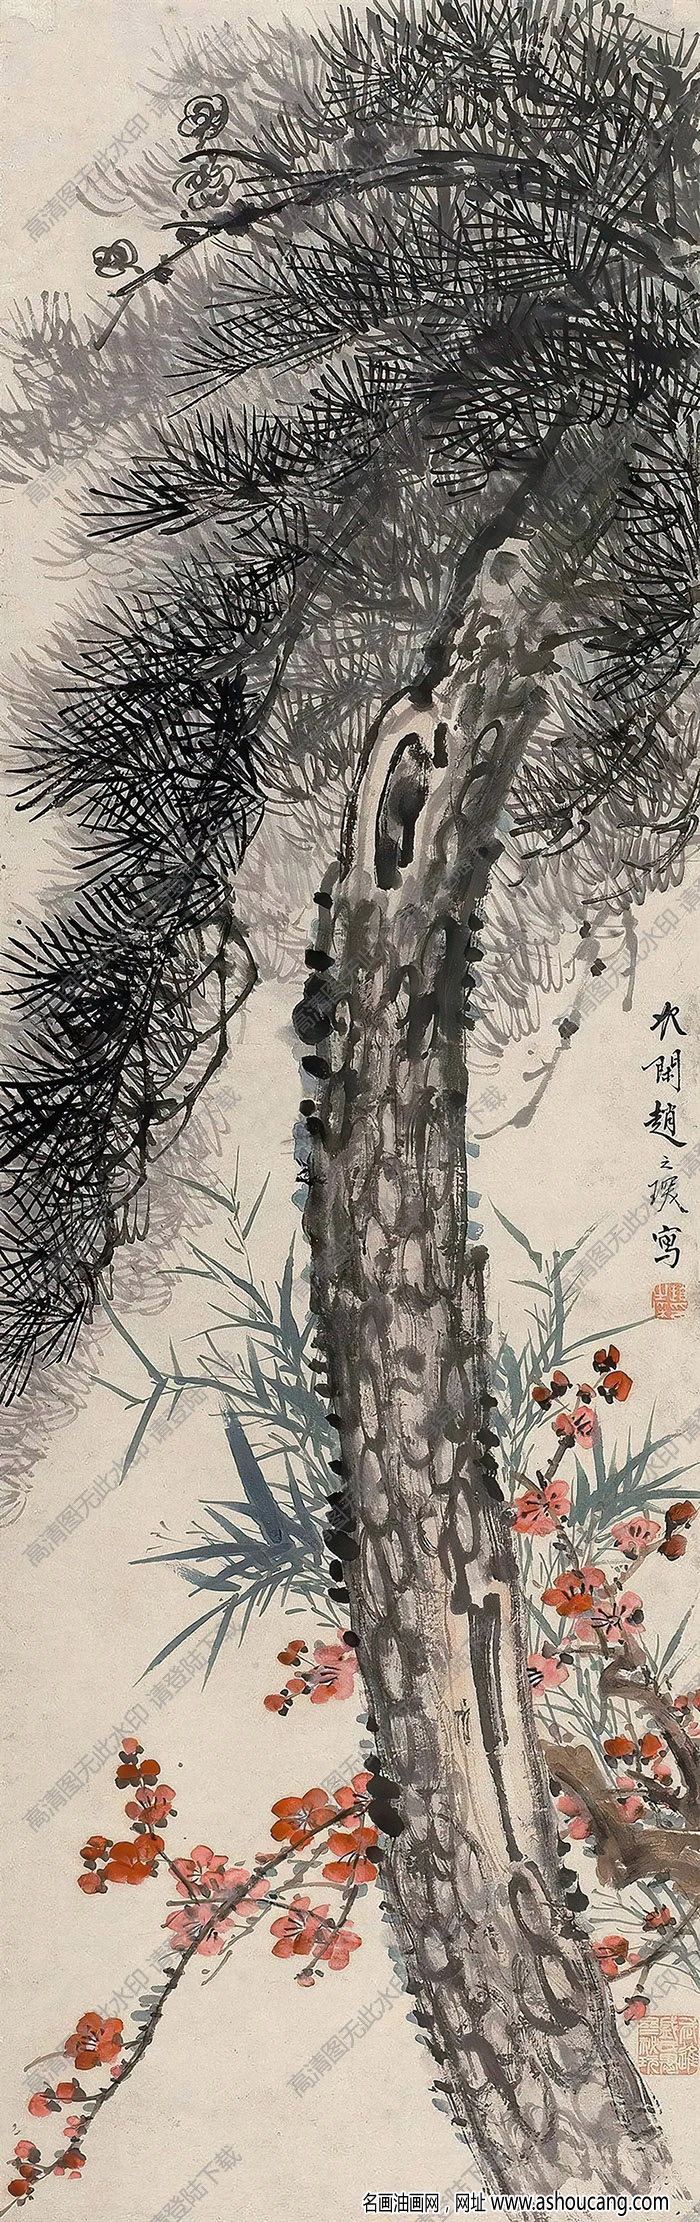 次閑趙之琛寫
高清图无此水印 请登陆下载
名画油画网，网址 www.ashoucang.com